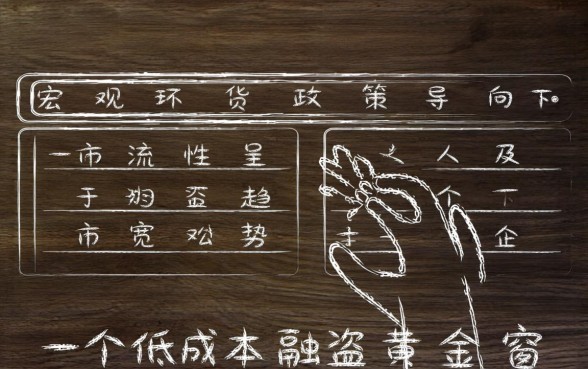 宏观环货政策导向下
一市流性呈
于 盗趋
市宽 势
人及
个下
企
一个低成本融盗黄金窗